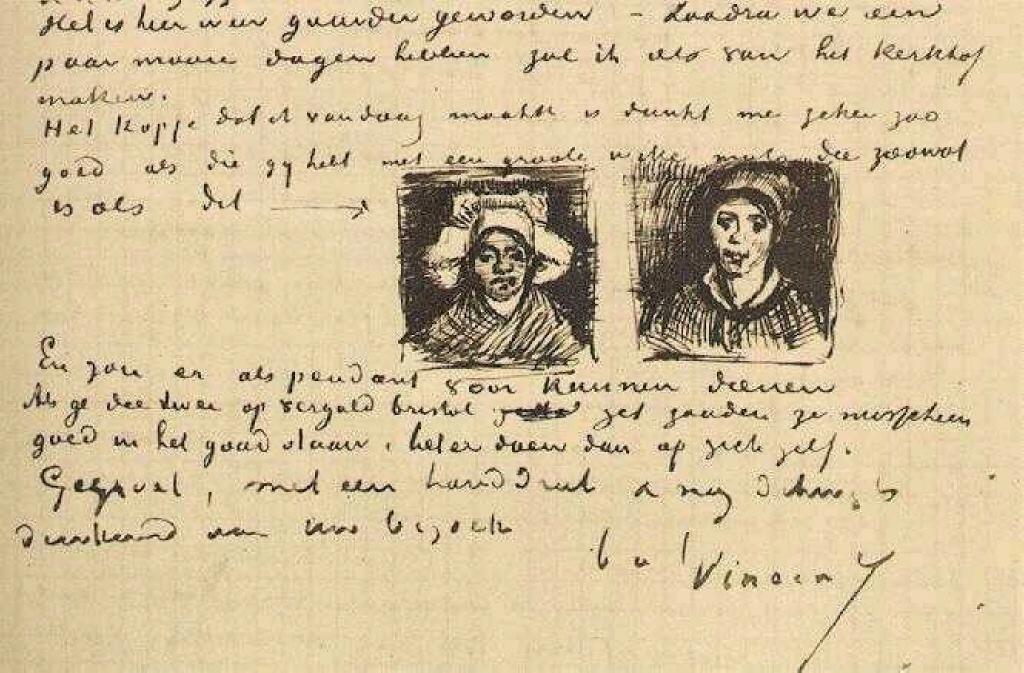 Het is hier weer guurder geworden – Zoodra we een
paar mooie dagen hebben zal ik iets van het kerkhof
maken.
Het kopje dat ik vandaag maakte is dunkt me zeker zoo
goed als die gij hebt met een groote witte muts die zoowat
is als dit
En zou er als pendant voor kunnen dienen
Als ge die twee op verguld bristol zet zouden ze misschien
goed in het goud staan, beter doen dan op zich zelf.
Gegroet, met een handdruk & nog dankbaar
van uw bezoek
b. à t. Vincent